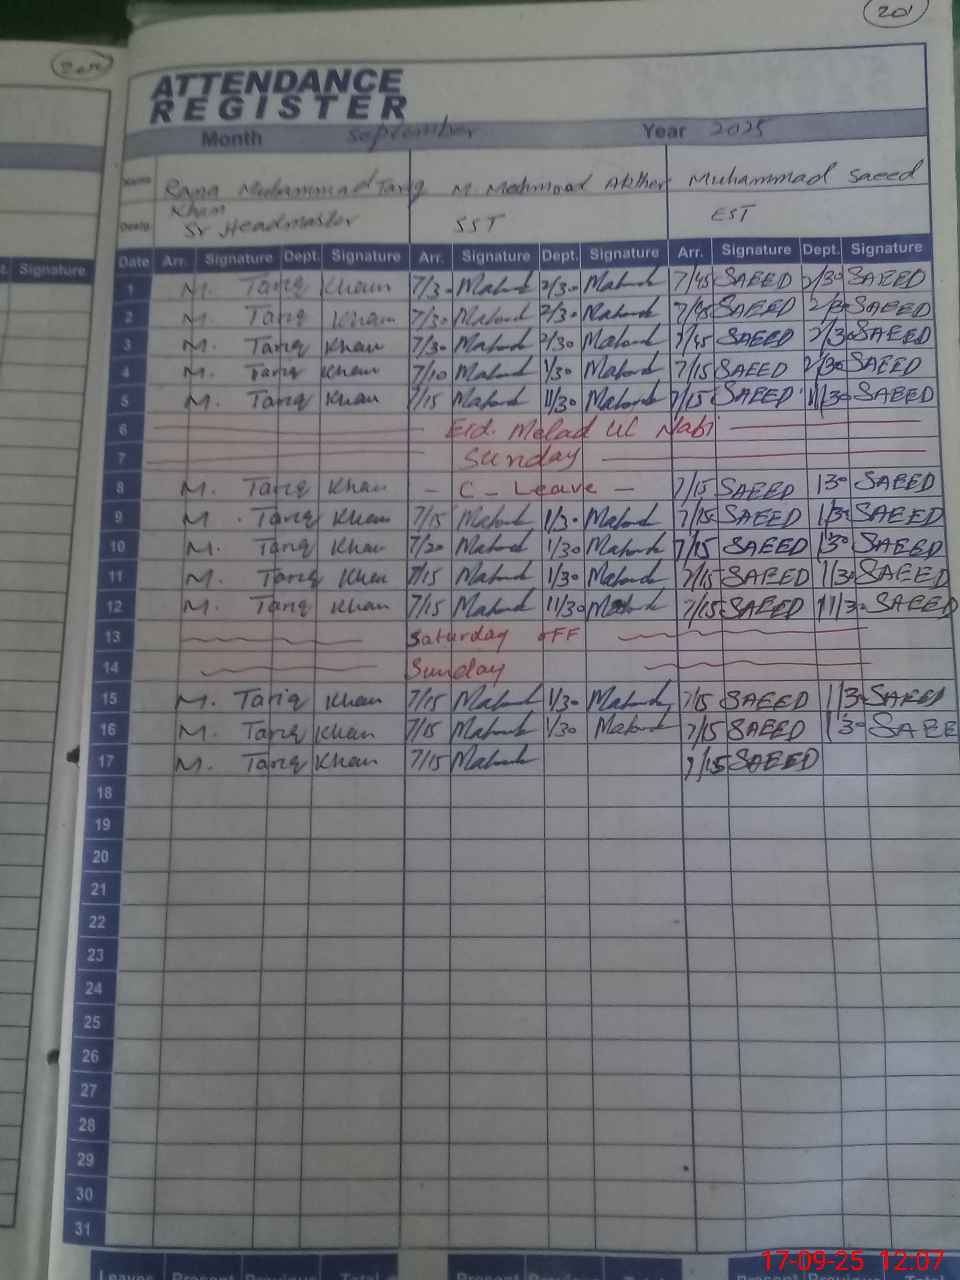 201
ATTENDANCE
REGISTER
Month September Year 2025
Name Rana Muhammad Tariq Khan M. Mehmood Akhter Muhammad Saeed
Desig. Sr Headmaster SST EST
Signature
Date Arr. Signature Dept. Signature Arr. Signature Dept. Signature Arr. Signature Dept. Signature
1 M. Tariq Khan 7/30 Mahmd 2/30 Mahmd 7/45 SAEED 2/30 SAEED
2 M. Tariq Khan 7/30 Mahmd 2/30 Mahmd 7/45 SAEED 2/30 SAEED
3 M. Tariq Khan 7/30 Mahmd 2/30 Mahmd 7/45 SAEED 2/30 SAEED
4 M. Tariq Khan 7/10 Mahmd 1/30 Mahmd 7/15 SAEED 2/30 SAEED
5 M. Tariq Khan 7/15 Mahmd 11/30 Mahmd 7/15 SAEED 11/30 SAEED
6 Eid. Melad Ul Nabi
7 Sunday
8 M. Tariq Khan - C - Leave - 7/15 SAEED 130 SAEED
9 M. Tariq Khan 7/15 Mahmd 1/30 Mahmd 7/15 SAEED 1/30 SAEED
10 M. Tariq Khan 7/20 Mahmd 1/30 Mahmd 7/15 SAEED 1/30 SAEED
11 M. Tariq Khan 7/15 Mahmd 1/30 Mahmd 7/15 SAEED 1/30 SAEED
12 M. Tariq Khan 7/15 Mahmd 11/30 Mahmd 7/15 SAEED 11/30 SAEED
13 Saturday OFF
14 Sunday
15 M. Tariq Khan 7/15 Mahmd 1/30 Mahmd 7/15 SAEED 1/30 SAEED
16 M. Tariq Khan 7/15 Mahmd 1/30 Mahmd 7/15 SAEED 1/30 SAEE
17 M. Tariq Khan 7/15 Mahmd 7/15 SAEED
18
19
20
21
22
23
24
25
26
27
28
29
30
31
Leaves Present Present
17-09-25 12:07